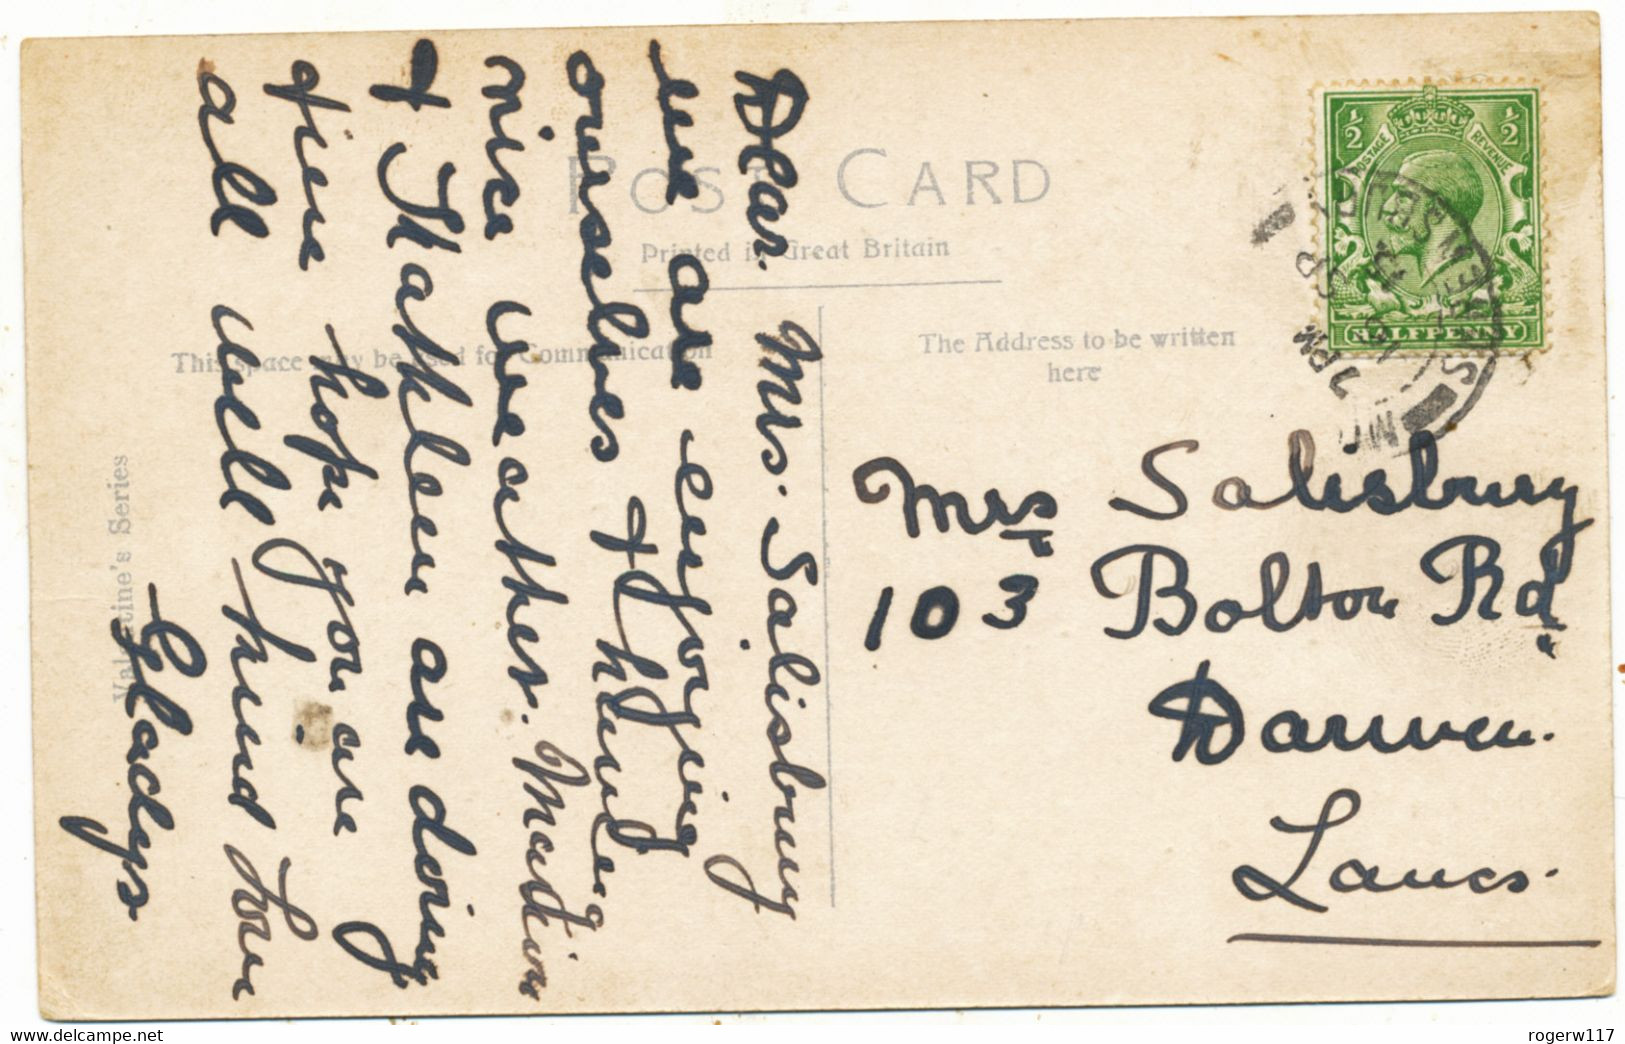 POST CARD
Printed in Great Britain
This space may be used for Communication
The Address to be written
here
Valentine's Series
Dear Mrs. Salisbury
we are enjoying
ourselves & having
nice weather.
& Kathleen are doing
fine hope you are
all well kind love
Gladys
Mrs Salisbury
103 Bolton Rd
Darwen.
Lancs.
½ ½
POSTAGE REVENUE
HALFPENNY
7 PM
www.delcampe.net
rogerw117